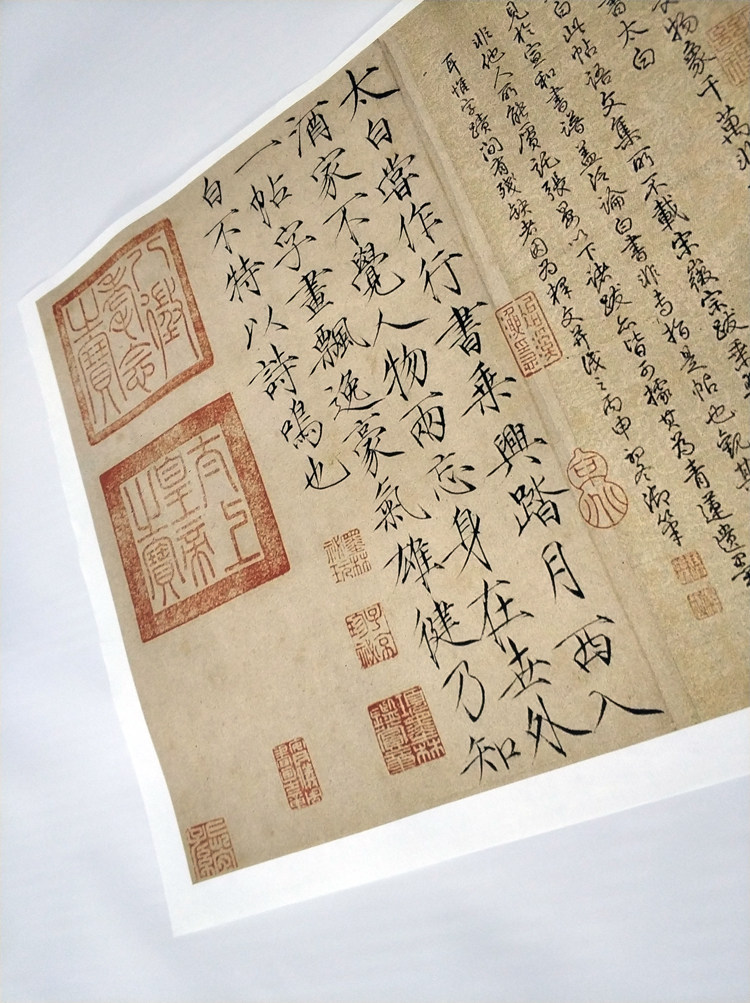 物象千萬非
書太白
白此帖語文集所不載宋徽宗跋乘
見於宣和書譜蓋泛論白書非專指是帖也觀其
非他人所能贋託張晏以下諸跋亦皆可據其為青蓮遺墨
耳惟字蹟間有殘缺者因為釋文并識之丙申初冬御筆
太白嘗作行書乘興踏月西入
酒家不覺人物兩忘身在世外
一帖字畫飄逸豪氣雄健乃知
白不特以詩鳴也
八徵耄念之寶
太上皇帝之寶
墨林祕玩
項墨林鑑賞章